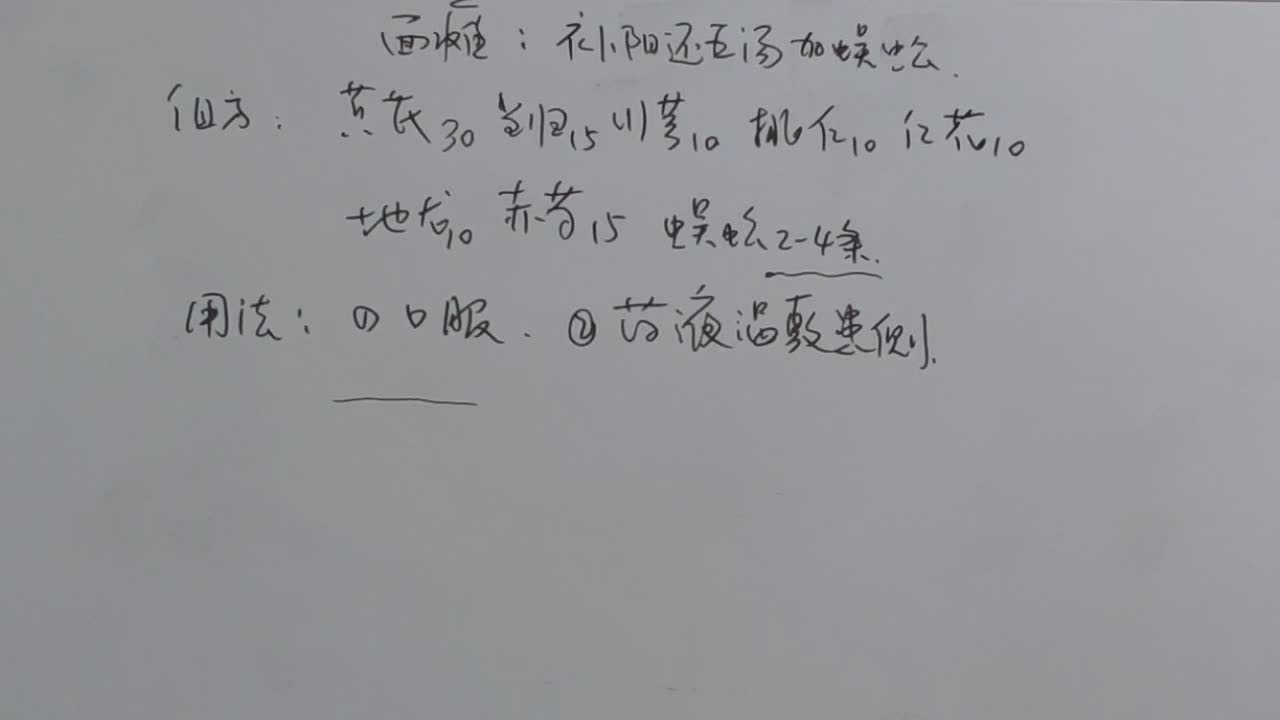 面瘫：补阳还五汤加蜈蚣.
组方：黄芪30 当归15 川芎10 桃仁10 红花10
地龙10 赤芍15 蜈蚣2-4条.
用法：① 口服. ② 药液温敷患侧.